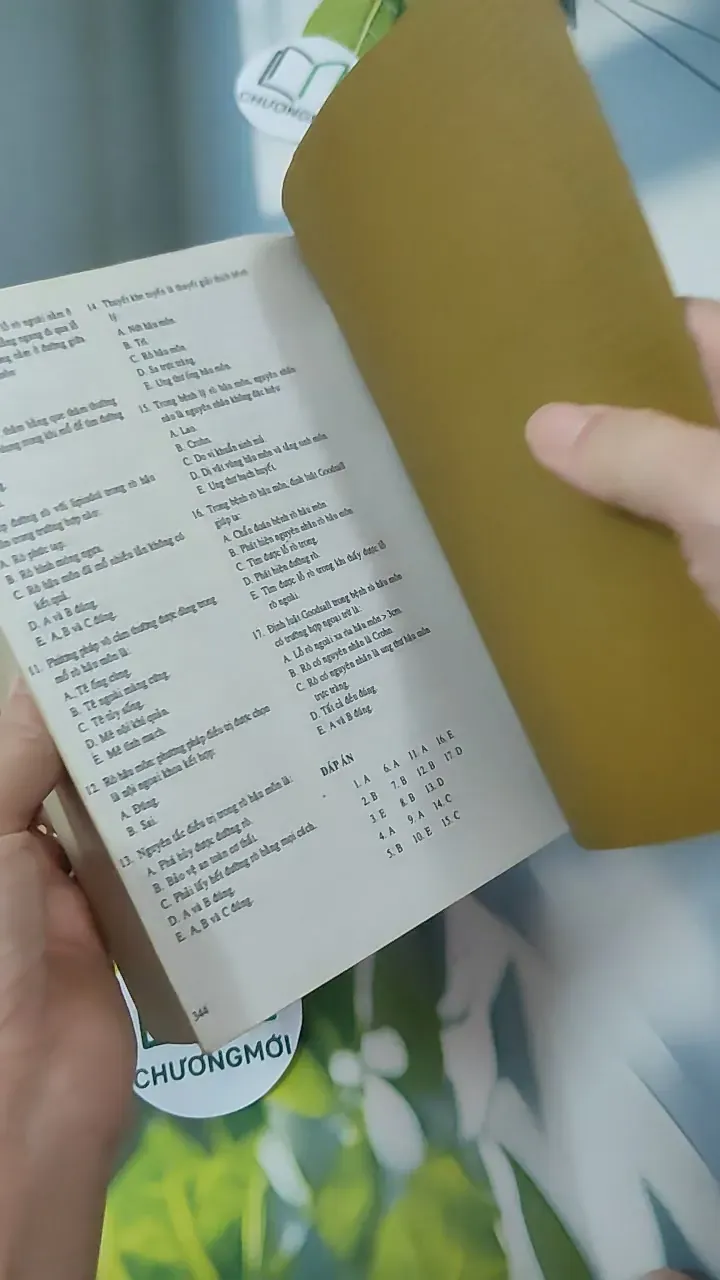 CHƯƠNGM
lỗ rò ngoài nằm ở
thăm bằng que thăm thường
dùng trong khi mổ để tìm đường
trong rò hậu
môn trong trường hợp nào:
A. Rò phức tạp.
B. Rò hình móng ngựa.
C. Rò hậu môn đã mổ nhiều lần không có
kết quả.
D. A và B đúng.
E. A, B và C đúng.
11. Phương pháp vô cảm thường được dùng trong
mổ rò hậu môn là:
A. Tê ống cùng.
B. Tê ngoài màng cứng.
C. Tê tủy sống.
D. Mê nội khí quản.
E. Mê tĩnh mạch.
12. Rò hậu môn: phương pháp điều trị được chọn
là nội ngoại khoa kết hợp:
A. Đúng.
B. Sai.
13. Nguyên tắc điều trị trong rò hậu môn là:
A. Phá hủy được đường rò.
B. Bảo vệ an toàn cơ thắt.
C. Phải lấy hết đường rò bằng mọi cách.
D. A và B đúng.
E. A, B và C đúng.
344
14. Thuyết khe tuyến là thuyết giải thích bệnh
lý:
A. Nứt hậu môn.
B. Trĩ.
C. Rò hậu môn.
D. Sa trực tràng.
E. Ung thư ống hậu môn.
15. Trong bệnh lý rò hậu môn, nguyên nhân
nào là nguyên nhân không đặc hiệu:
A. Lao.
B. Crohn.
C. Do vi khuẩn sinh mủ.
D. Dị vật vùng hậu môn và tầng sinh môn
E. Ung thư bạch huyết.
16. Trong bệnh rò hậu môn, định luật Goodsall
giúp ta:
A. Chẩn đoán bệnh rò hậu môn
B. Phát hiện nguyên nhân rò hậu môn
C. Tìm được lỗ rò trong.
D. Phát hiện đường rò.
E. Tìm được lỗ rò trong khi thấy được lỗ
rò ngoài.
17. Định luật Goodsall trong bệnh rò hậu môn
có trường hợp ngoại trừ là:
A. Lỗ rò ngoài xa rìa hậu môn > 3cm
B. Rò có nguyên nhân là Crohn.
C. Rò có nguyên nhân là ung thư hậu môn
trực tràng.
D. Tất cả đều đúng.
E. A và B đúng.
ĐÁP ÁN
1. A 6. A 11. A 16. E
2. B 7. B 12. B 17. D
3. E 8. B 13. D
4. A 9. A 14. C
5. B 10. E 15. C
CHƯƠNGMỚI